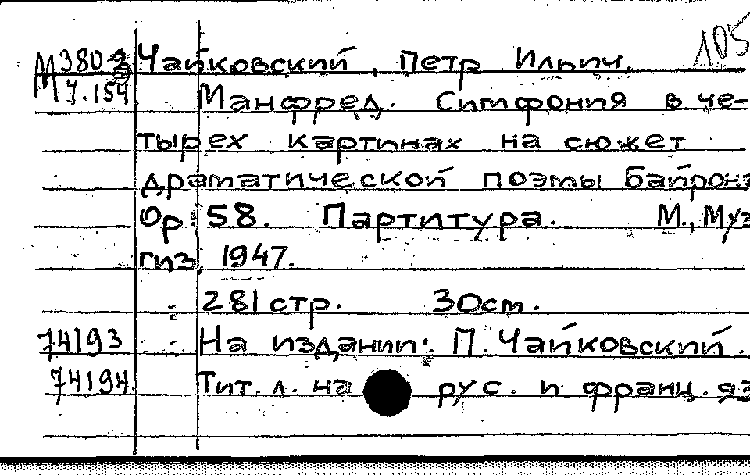 105
М 380-3 Чайковский, Петр Ильич.
М 7.154 Манфред. Симфония в че-
тырех картинах на сюжет
драматической поэмы Байрона
Ор. 58. Партитура. М., Муз
гиз, 1947.
281 стр. 30 см.
74193 На издании: П. Чайковский.
74194 Тит. л. на рус. и франц. яз